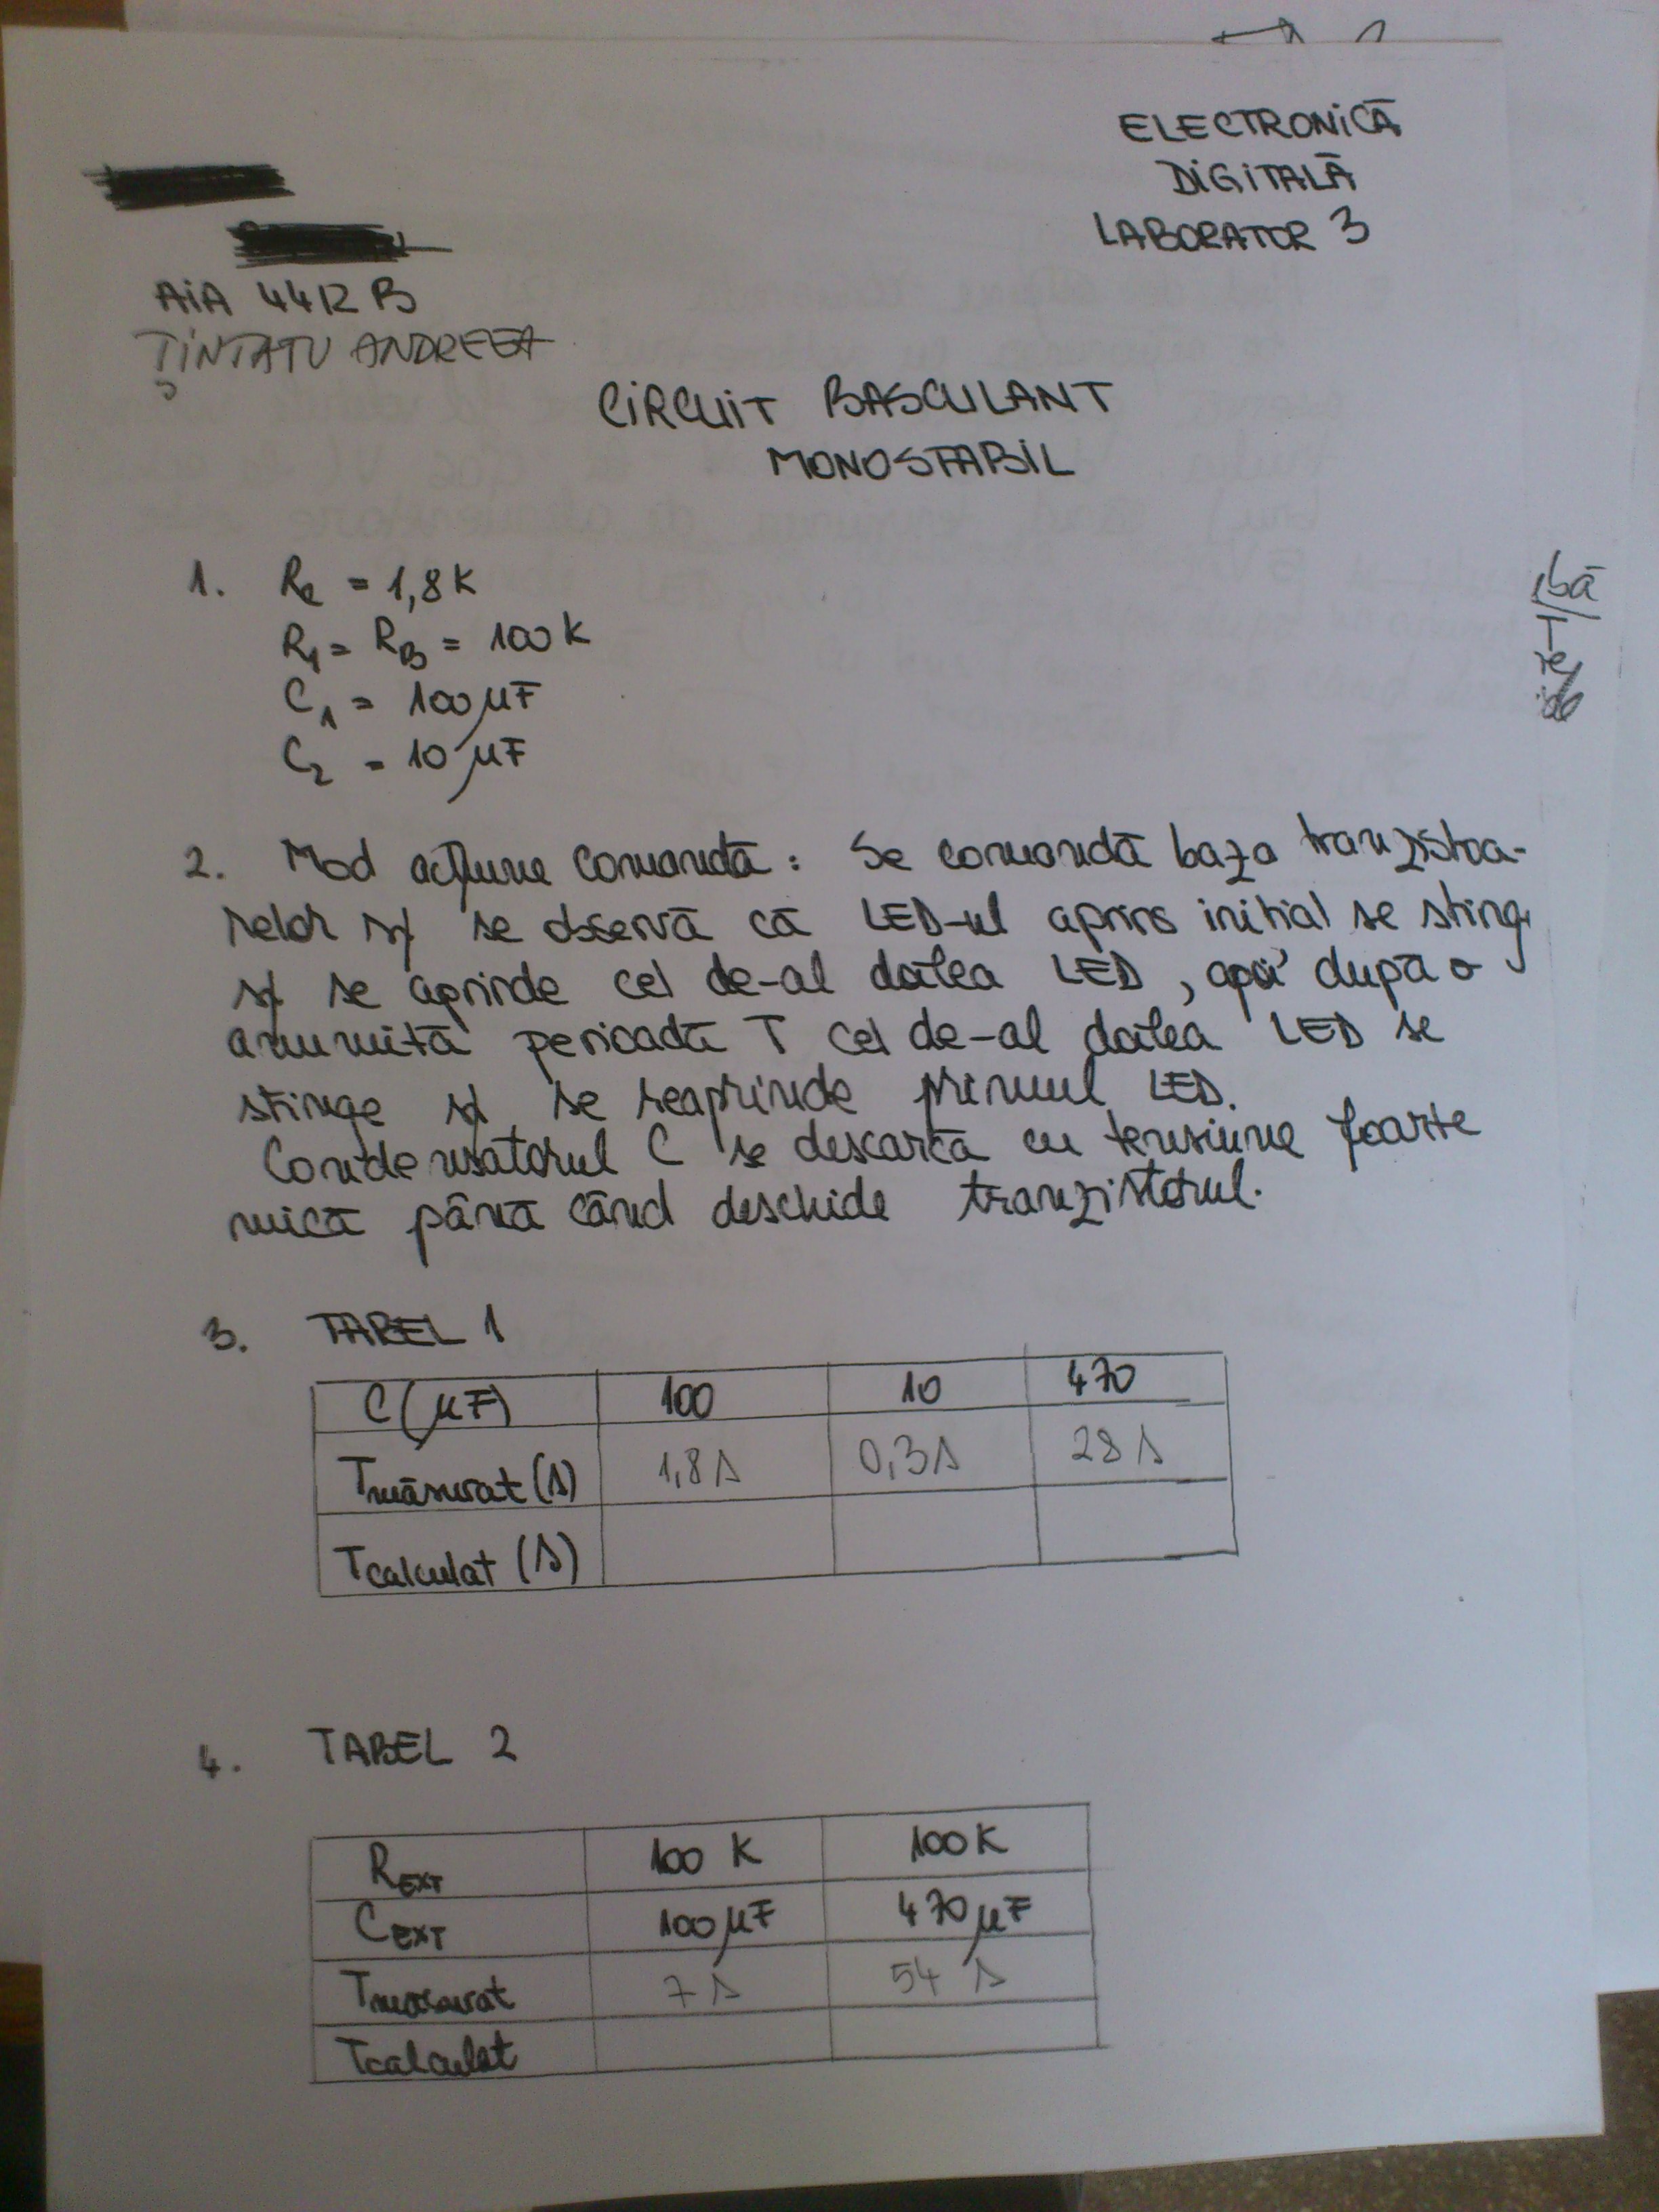 ELECTRONICĂ
DIGITALĂ
LABORATOR 3
AIA 4412 B
ȚÎNȚATU ANDREEA
CIRCUIT BASCULANT
MONOSTABIL
1. Rc = 1,8 K
R1 = RB = 100 K
C1 = 100 μF
C2 = 10 μF
2. Mod acțiune comandă : Se comandă baza tranzistoa-
relor și se observă că LED-ul aprins inițial se sting
și se aprinde cel de-al doilea LED, apoi după o
anumită perioadă T cel de-al doilea LED se
stinge și se reaprinde primul LED.
Condensatorul C se descarcă cu tensiune foarte
mică până când deschide tranzistorul.
3. TABEL 1
C(μF) 100 10 470
Tmăsurat (s) 1,8 s 0,3 s 28 s
Tcalculat (s)
4. TABEL 2
REXT 100 K 100 K
CEXT 100 μF 470 μF
Tmăsurat 7 s 54 s
Tcalculat